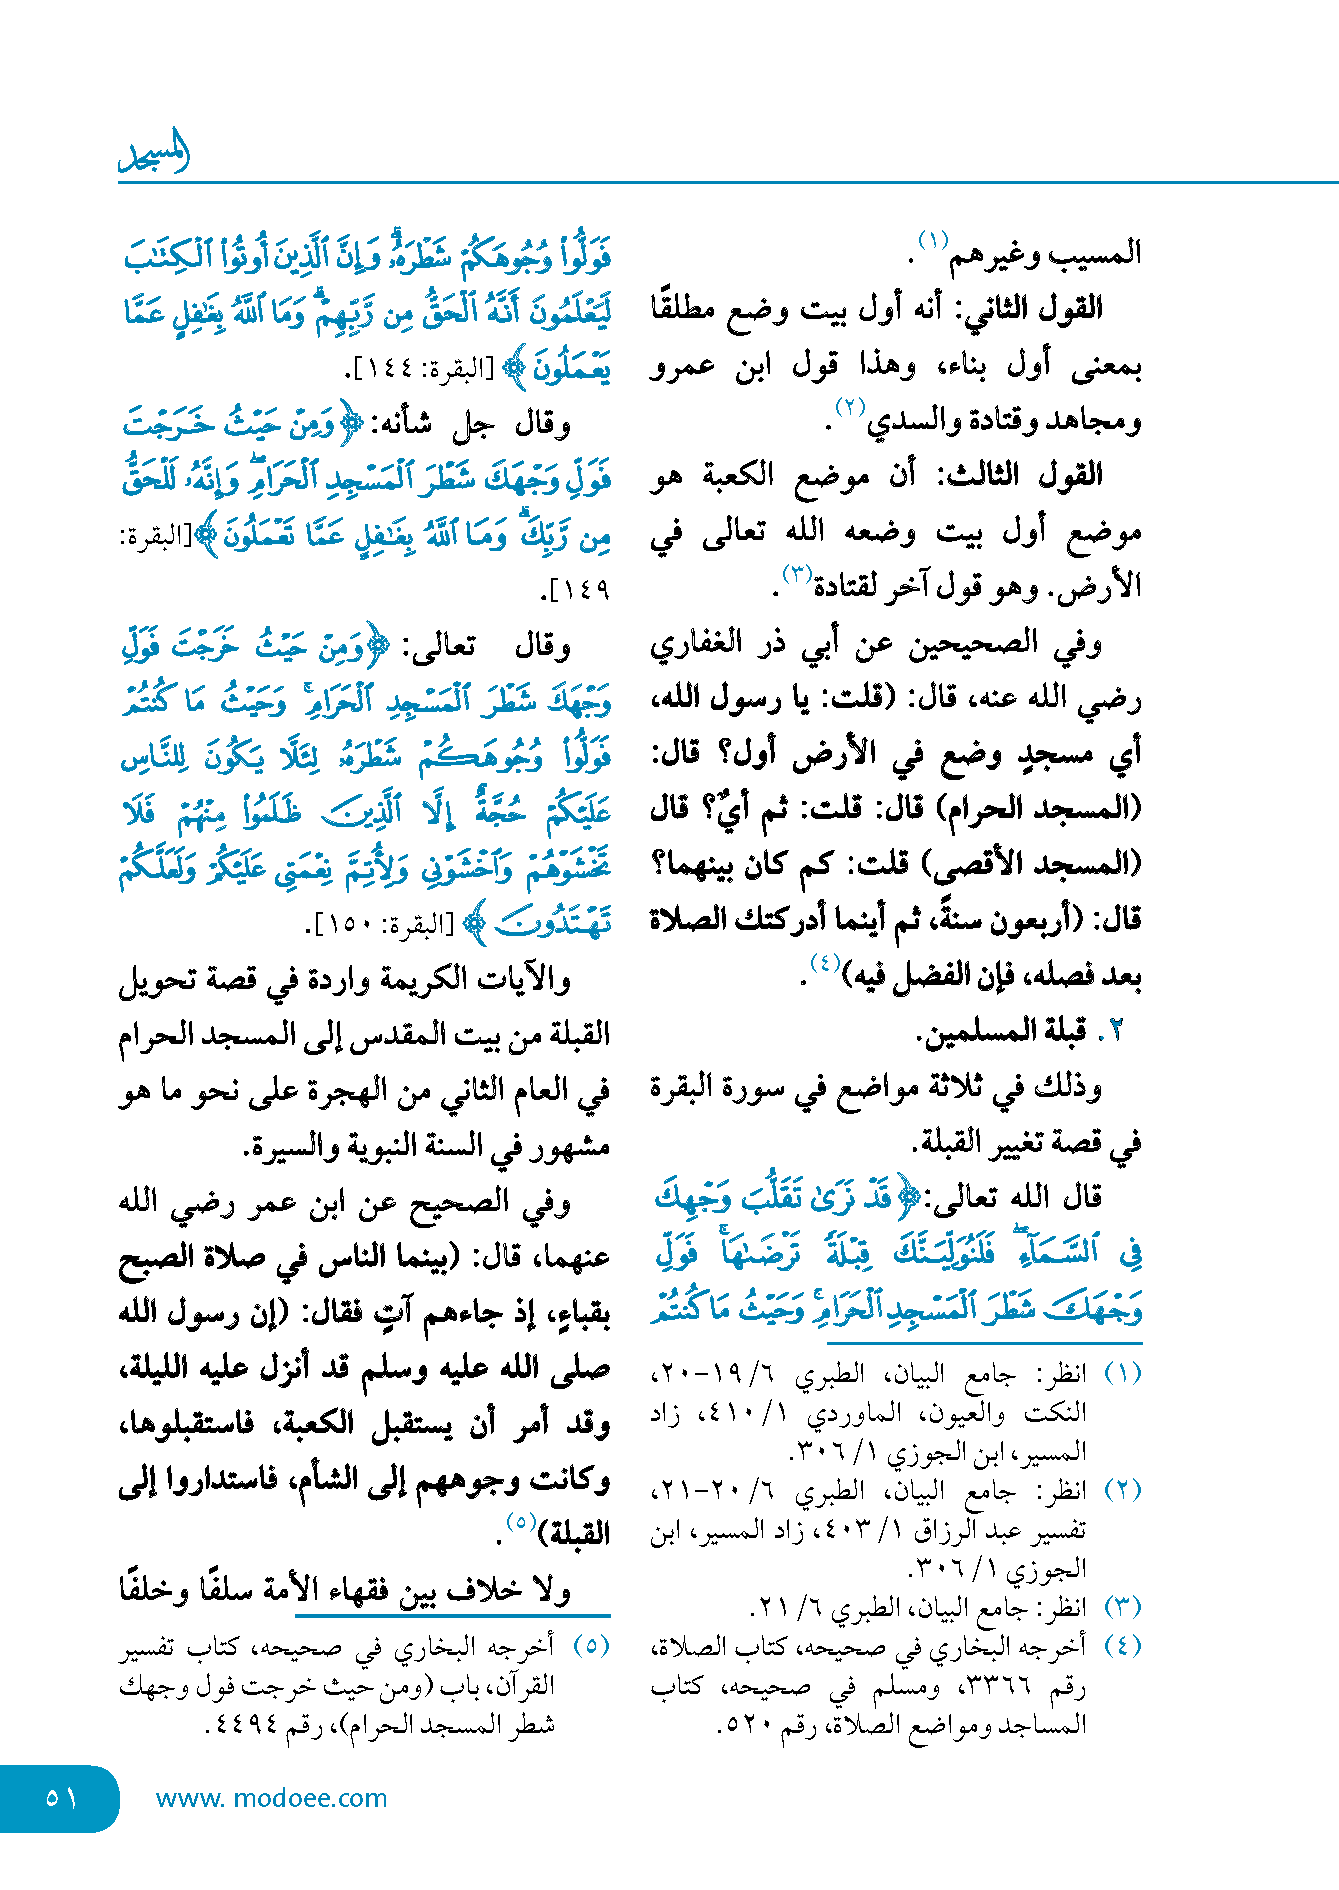 المسجد
المسيب وغيرهم(١).
القول الثاني: أنه أول بيت وضع مطلقًا
بمعنى أول بناء، وهذا قول ابن عمرو
ومجاهد وقتادة والسدي(٢).
القول الثالث: أن موضع الكعبة هو
موضع أول بيت وضعه الله تعالى في
الأرض. وهو قول آخر لقتادة(٣).
وفي الصحيحين عن أبي ذر الغفاري
رضي الله عنه، قال: (قلت: يا رسول الله،
أي مسجدٍ وضع في الأرض أول؟ قال:
(المسجد الحرام) قال: قلت: ثم أيٌ؟ قال
(المسجد الأقصى) قلت: كم كان بينهما؟
قال: (أربعون سنةً، ثم أينما أدركتك الصلاة
بعد فصله، فإن الفضل فيه)(٤).
٢. قبلة المسلمين.
وذلك في ثلاثة مواضع في سورة البقرة
في قصة تغيير القبلة.
قال الله تعالى: ﴿قَدْ نَرَىٰ تَقَلُّبَ وَجْهِكَ
فِي ٱلسَّمَآءِ ۖ فَلَنُوَلِّيَنَّكَ قِبْلَةً تَرْضَىٰهَا ۚ فَوَلِّ
وَجْهَكَ شَطْرَ ٱلْمَسْجِدِ ٱلْحَرَامِ ۚ وَحَيْثُ مَا كُنتُمْ
(١) انظر: جامع البيان، الطبري ٦/ ١٩-٢٠،
النكت والعيون، الماوردي ١/ ٤١٠، زاد
المسير، ابن الجوزي ١/ ٣٠٦.
(٢) انظر: جامع البيان، الطبري ٦/ ٢٠-٢١،
تفسير عبد الرزاق ١/ ٤٠٣، زاد المسير، ابن
الجوزي ١/ ٣٠٦.
(٣) انظر: جامع البيان، الطبري ٦/ ٢١.
(٤) أخرجه البخاري في صحيحه، كتاب الصلاة،
رقم ٣٣٦٦، ومسلم في صحيحه، كتاب
المساجد ومواضع الصلاة، رقم ٥٢٠.
فَوَلُّوا۟ وُجُوهَكُمْ شَطْرَهُۥ ۗ وَإِنَّ ٱلَّذِينَ أُوتُوا۟ ٱلْكِتَٰبَ
لَيَعْلَمُونَ أَنَّهُ ٱلْحَقُّ مِن رَّبِّهِمْ ۗ وَمَا ٱللَّهُ بِغَٰفِلٍ عَمَّا
يَعْمَلُونَ﴾ [البقرة: ١٤٤].
وقال جل شأنه: ﴿وَمِنْ حَيْثُ خَرَجْتَ
فَوَلِّ وَجْهَكَ شَطْرَ ٱلْمَسْجِدِ ٱلْحَرَامِ ۖ وَإِنَّهُۥ لَلْحَقُّ
مِن رَّبِّكَ ۗ وَمَا ٱللَّهُ بِغَٰفِلٍ عَمَّا تَعْمَلُونَ﴾ [البقرة:
١٤٩].
وقال تعالى: ﴿وَمِنْ حَيْثُ خَرَجْتَ فَوَلِّ
وَجْهَكَ شَطْرَ ٱلْمَسْجِدِ ٱلْحَرَامِ ۚ وَحَيْثُ مَا كُنتُمْ
فَوَلُّوا۟ وُجُوهَكُمْ شَطْرَهُۥ لِئَلَّا يَكُونَ لِلنَّاسِ
عَلَيْكُمْ حُجَّةٌ إِلَّا ٱلَّذِينَ ظَلَمُوا۟ مِنْهُمْ فَلَا
تَخْشَوْهُمْ وَٱخْشَوْنِي وَلِأُتِمَّ نِعْمَتِي عَلَيْكُمْ وَلَعَلَّكُمْ
تَهْتَدُونَ﴾ [البقرة: ١٥٠].
والآيات الكريمة واردة في قصة تحويل
القبلة من بيت المقدس إلى المسجد الحرام
في العام الثاني من الهجرة على نحو ما هو
مشهور في السنة النبوية والسيرة.
وفي الصحيح عن ابن عمر رضي الله
عنهما، قال: (بينما الناس في صلاة الصبح
بقباءٍ، إذ جاءهم آتٍ فقال: (إن رسول الله
صلى الله عليه وسلم قد أنزل عليه الليلة،
وقد أمر أن يستقبل الكعبة، فاستقبلوها،
وكانت وجوههم إلى الشأم، فاستداروا إلى
القبلة)(٥).
ولا خلاف بين فقهاء الأمة سلفًا وخلفًا
(٥) أخرجه البخاري في صحيحه، كتاب تفسير
القرآن، باب (ومن حيث خرجت فول وجهك
شطر المسجد الحرام)، رقم ٤٤٩٤.
www. modoee.com
٥١